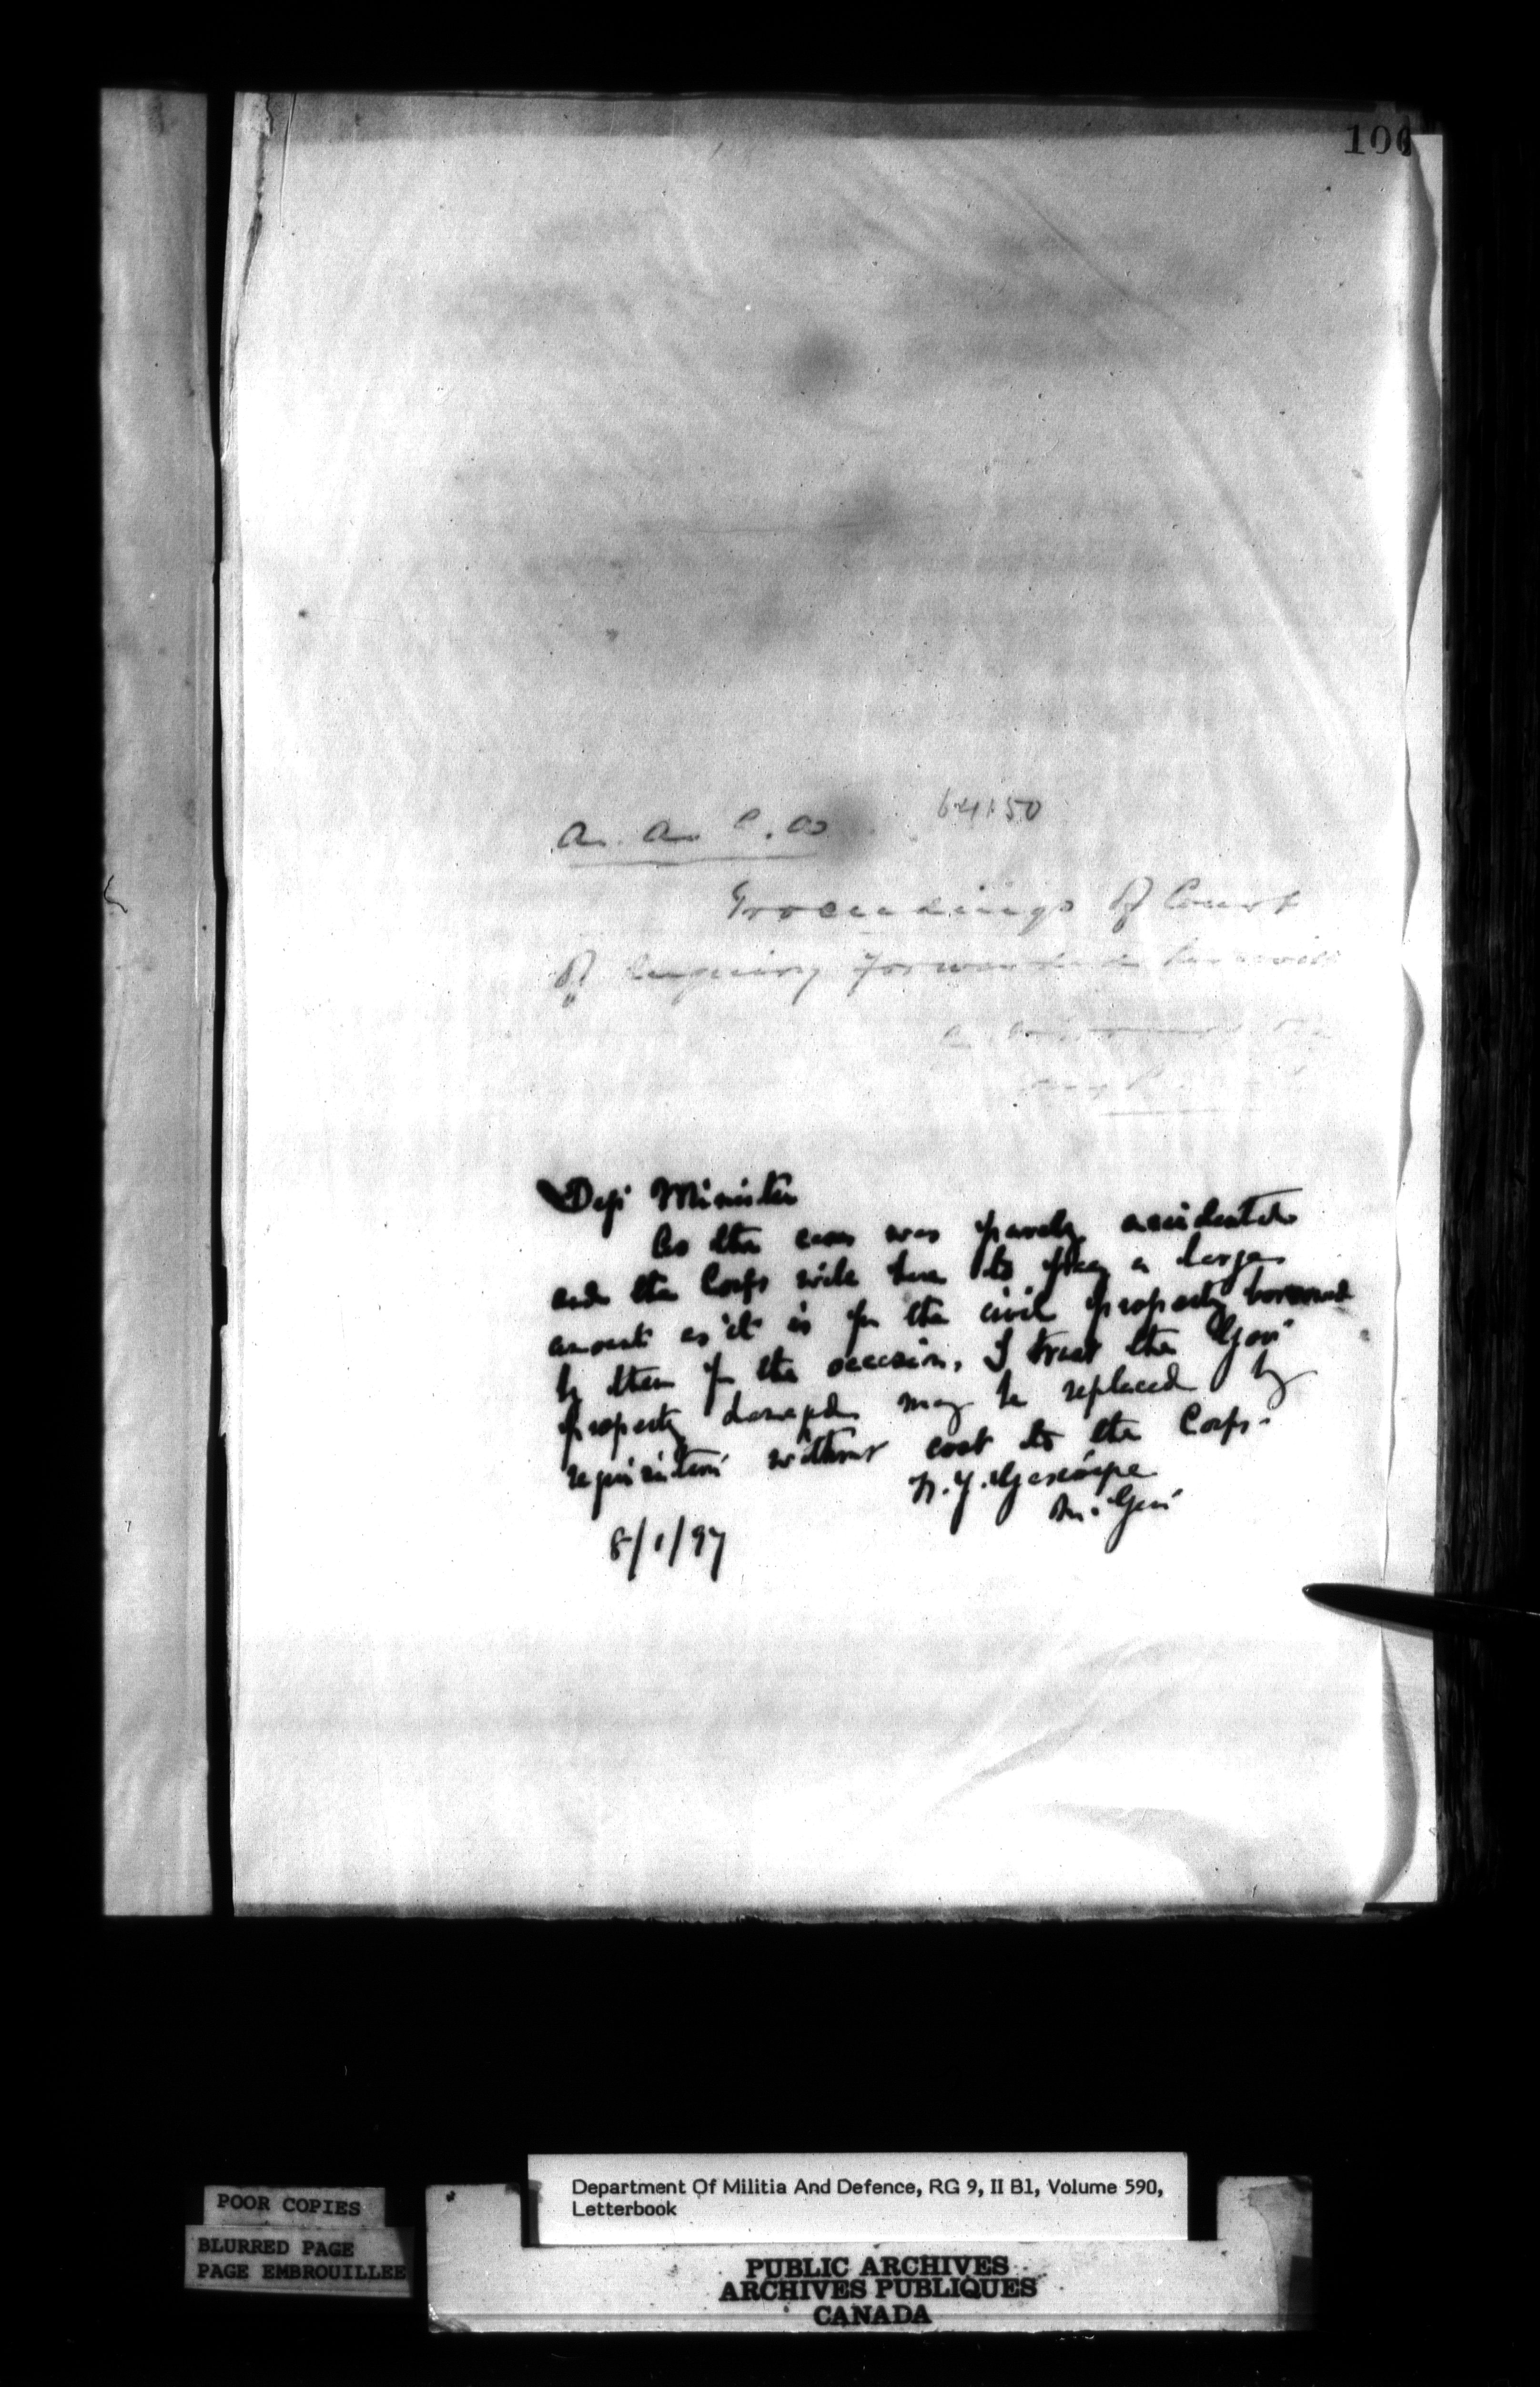 100
64150
Proceedings of Court
of Inquiry forwarded herewith
Dep Minister
As the case was purely accidental
and the Corps will have to pay a large
amount as it is for the civil property borrowed
by them for the occasion, I trust the Govt
property damaged may be replaced by
requisition without cost to the Corps.
Gascoigne
M. Gen
8/1/97
Department Of Militia And Defence, RG 9, II B1, Volume 590,
Letterbook
POOR COPIES
BLURRED PAGE
PAGE EMBROUILLEE
PUBLIC ARCHIVES
ARCHIVES PUBLIQUES
CANADA